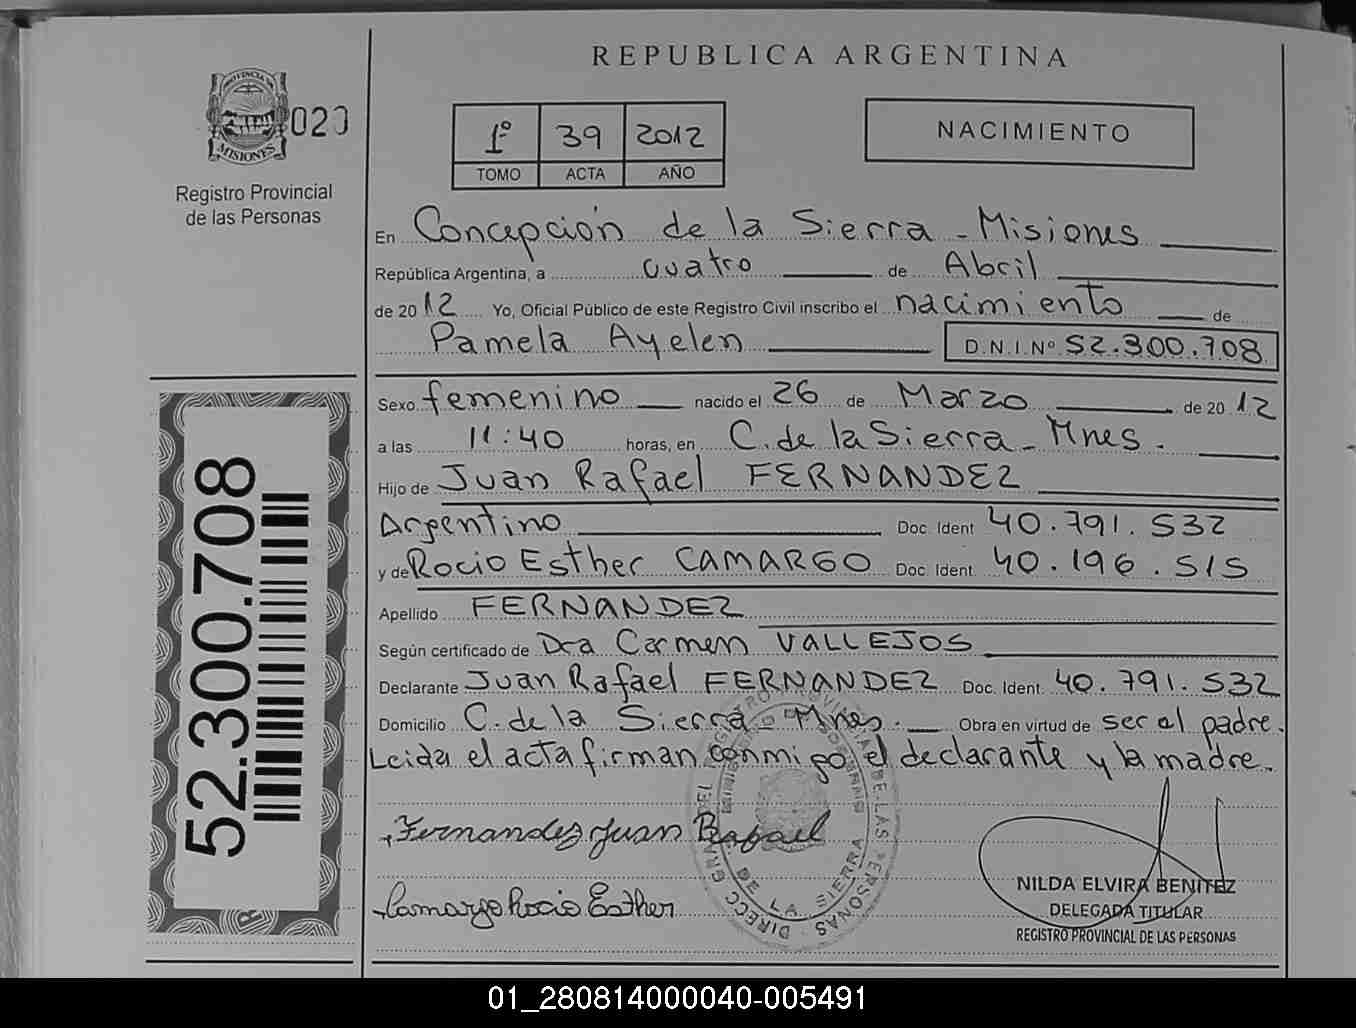 REPUBLICA ARGENTINA
PROVINCIA DE
MISIONES
020
Registro Provincial
de las Personas
1º 39 2012
TOMO ACTA AÑO
NACIMIENTO
En Concepción de la Sierra - Misiones
República Argentina, a cuatro de Abril
de 2012 Yo, Oficial Público de este Registro Civil inscribo el nacimiento de
Pamela Ayelen D.N.I.Nº 52.300.708
Sexo femenino nacido el 26 de Marzo de 2012
a las 11:40 horas, en C. de la Sierra - Mnes.
Hijo de Juan Rafael FERNANDEZ
Argentino Doc. Ident 40.791.532
y de Rocio Esther CAMARGO Doc. Ident. 40.196.515
Apellido FERNANDEZ
Según certificado de Dra Carmen VALLEJOS
Declarante Juan Rafael FERNANDEZ Doc. Ident. 40.791.532
Domicilio C. de la Sierra - Mnes. Obra en virtud de ser el padre.
Leida el acta firman conmigo el declarante y la madre.
Fernandez Juan Rafael
Camargo Rocio Esther
DIRECC GRAL DEL REGISTRO PROVINCIAL DE LAS PERSONAS
DE LA SIERRA
NILDA ELVIRA BENITEZ
DELEGADA TITULAR
REGISTRO PROVINCIAL DE LAS PERSONAS
52.300.708
01_280814000040-005491